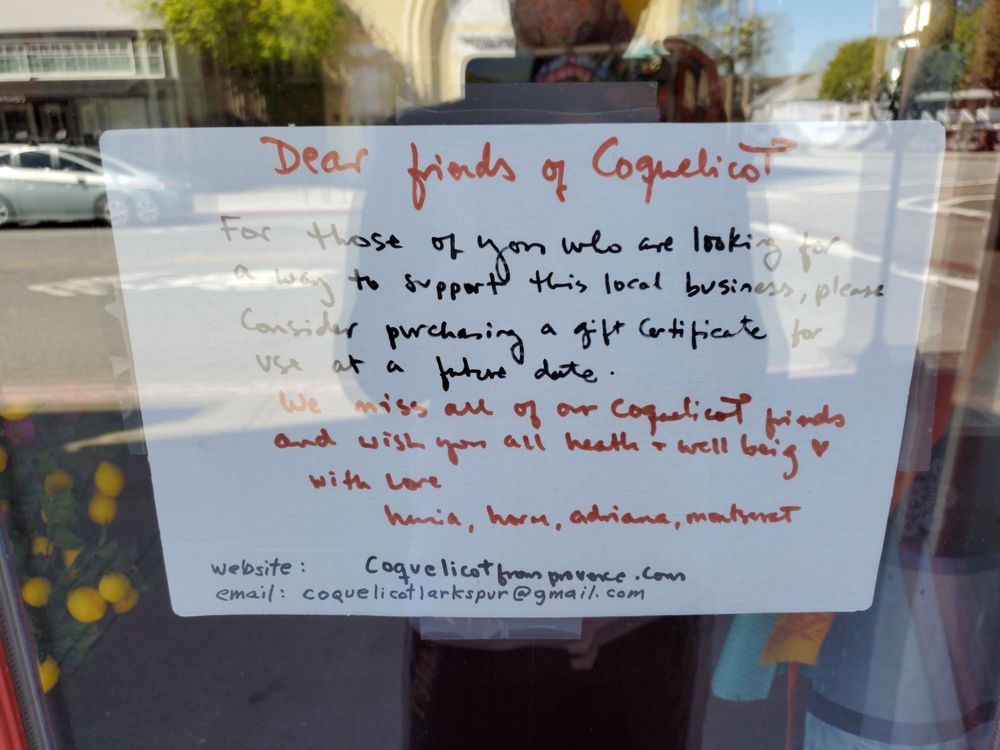 Dear friends of Coquelicot
For those of you who are looking for
a way to support this local business, please
Consider purchasing a gift Certificate for
use at a future date.
We miss all of our Coquelicot friends
and wish you all health + well being ♥
with Love
adriana, montserrat
website: Coquelicotfromprovence.com
email: coquelicotlarkspur@gmail.com